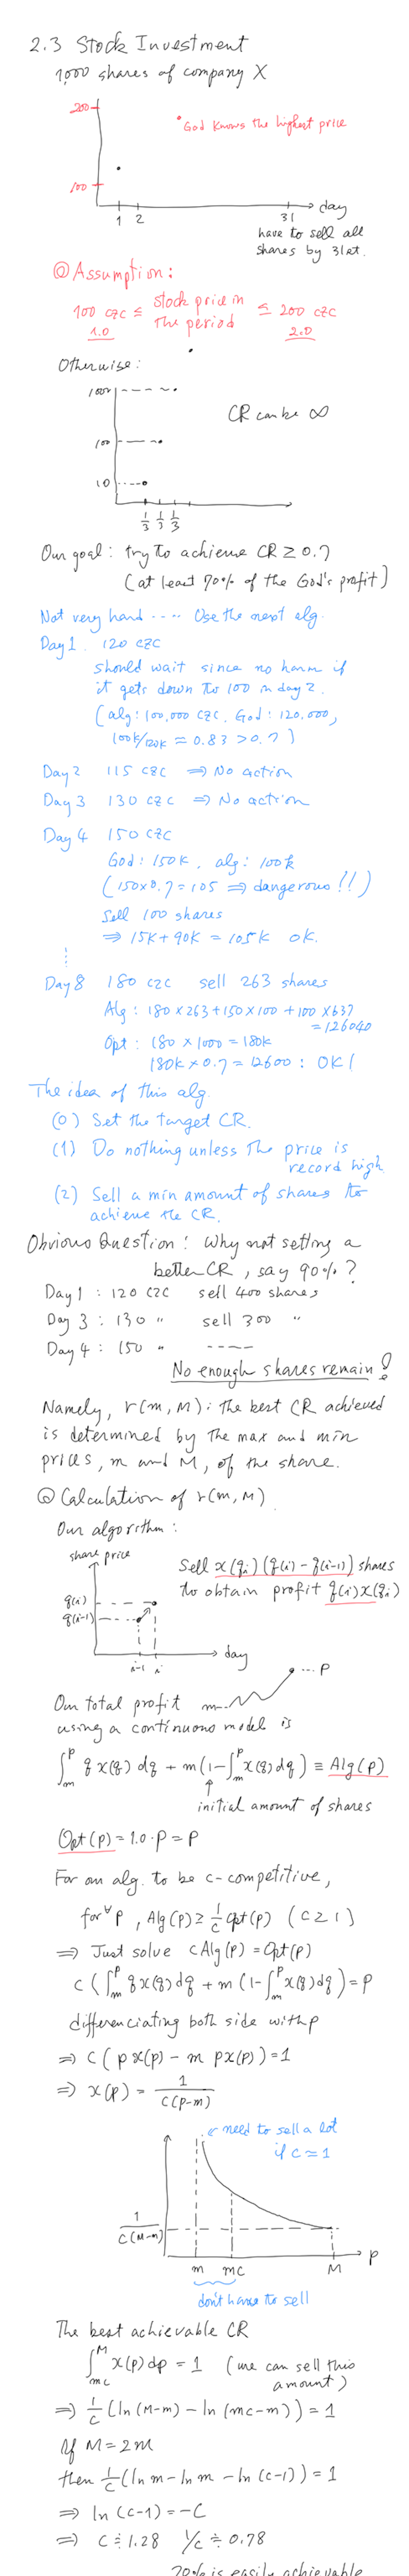 2.3 Stock Investment
1,000 shares of company X
200
• God knows the highest price
100
1 2 31 day
have to sell all
shares by 31st.
◎ Assumption:
100 CZC ≤ stock price in the period ≤ 200 CZC
1.0 2.0
Otherwise:
1000
CR can be ∞
100
10
1/3 1/3 1/3
Our goal: try to achieve CR ≥ 0.7
(at least 70% of the God's profit)
Not very hard .... Use the next alg.
Day 1. 120 CZC
should wait since no harm if
it gets down to 100 in day 2.
(alg: 100,000 CZC, God: 120,000,
100k/120k ≈ 0.83 > 0.7)
Day 2 115 CZC ⇒ No action
Day 3 130 CZC ⇒ No action
Day 4 150 CZC
God: 150K, alg: 100k
(150×0.7 = 105 ⇒ dangerous!!)
Sell 100 shares
⇒ 15K + 90K = 105K OK.
⋮
Day 8 180 CZC sell 263 shares
Alg: 180×263 + 150×100 + 100×637
= 126040
Opt: 180 × 1000 = 180k
180k × 0.7 = 12600 : OK!
The idea of this alg.
(0) Set the target CR.
(1) Do nothing unless the price is
record high
(2) Sell a min amount of shares to
achieve the CR.
Obvious Question: Why not setting a
better CR, say 90%?
Day 1 : 120 CZC sell 400 shares
Day 3 : 130 〃 sell 300 〃
Day 4 : 150 〃 ----
No enough shares remain!
Namely, r(m, M): the best CR achieved
is determined by the max and min
prices, m and M, of the share.
◎ Calculation of r(m, M)
Our algorithm:
share price
Sell x(q_i)(q(i) - q(i-1)) shares
to obtain profit q(i)x(q_i)
q(i)
q(i-1)
i-1 i day
m P
Our total profit
using a continuous model is
∫_m^p q x(q) dq + m(1 - ∫_m^p x(q)dq) ≡ Alg(p)
initial amount of shares
Opt(p) = 1.0·P = P
For an alg. to be c-competitive,
for ∀p, Alg(p) ≥ 1/c Opt(p) (c ≥ 1)
⇒ Just solve cAlg(p) = Opt(p)
c(∫_m^p q x(q) dq + m(1 - ∫_m^p x(q)dq)) = p
differenciating both side with p
⇒ c(p x(p) - m px(p)) = 1
⇒ x(p) = 1/c(p-m)
need to sell a lot
if c = 1
1/c(M-m)
m mc M p
don't have to sell
The best achievable CR
∫_mc^M x(p)dp = 1 (we can sell this
amount)
⇒ 1/c (ln(M-m) - ln(mc-m)) = 1
If M = 2m
then 1/c (ln m - ln m - ln(c-1)) = 1
⇒ ln(c-1) = -c
⇒ c ≒ 1.28 1/c ≒ 0.78
70% is easily achievable